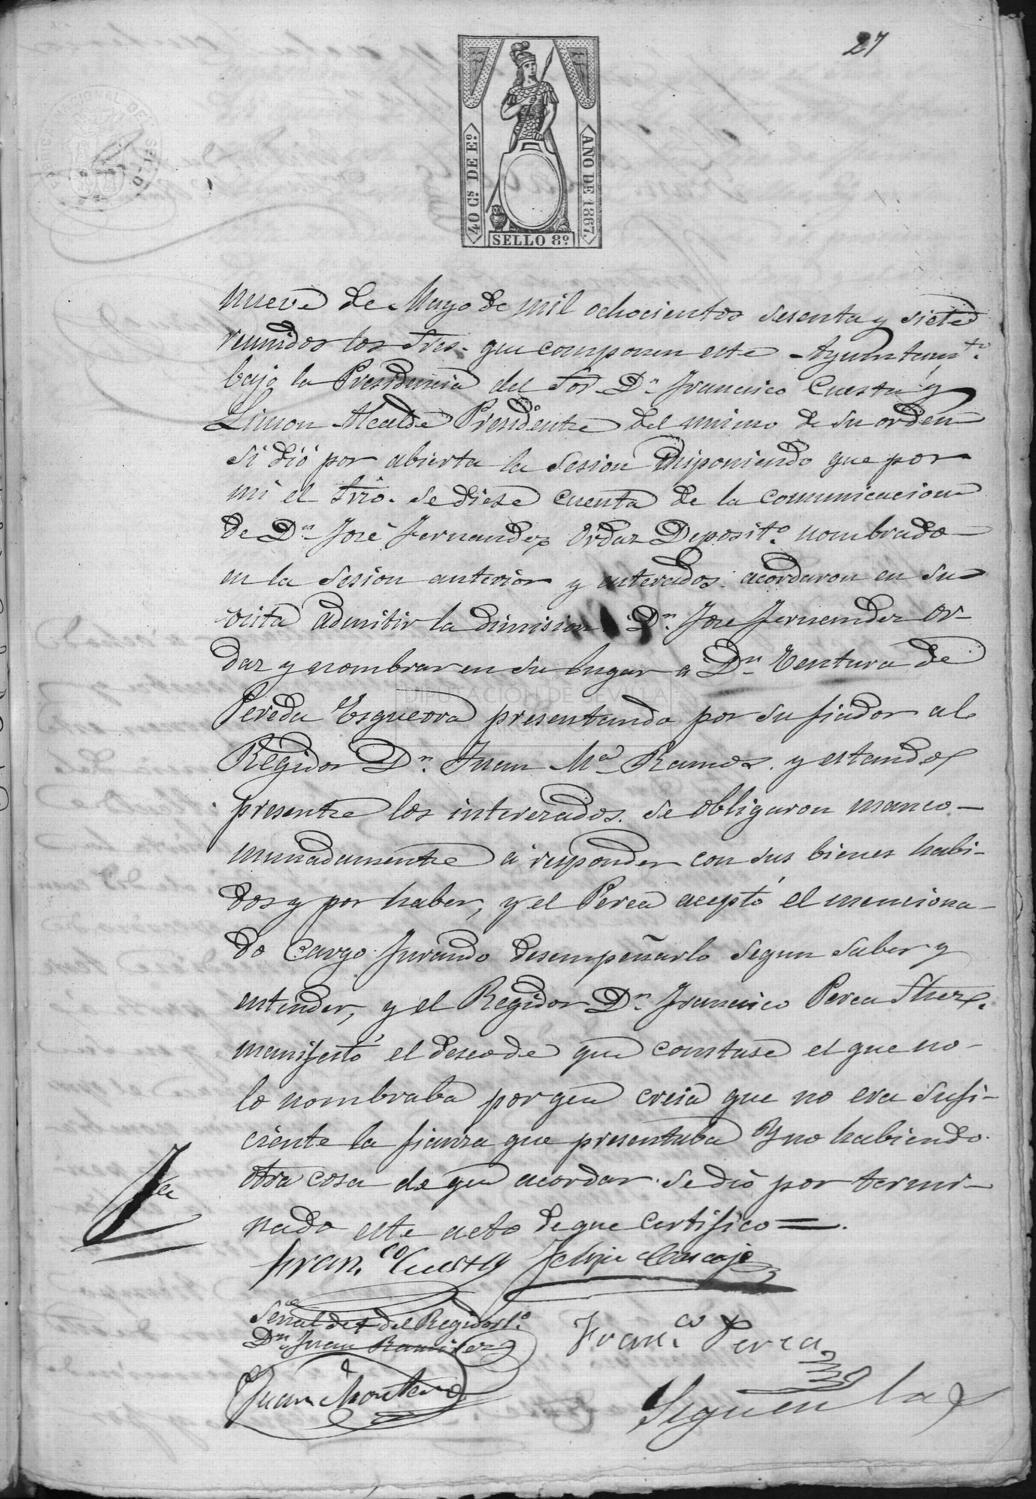 27
40 Cs DE Eº
AÑO DE 1867.
SELLO 8º
nueve de Mayo de mil ochocientos sesenta y siete
reunidos los Sres. que componen este Ayuntamto.
bajo la Presidencia del Sor. Dn. Francisco Cuesta y
Limon Alcalde Presidente del mismo de su orden
se dió por abierta la sesion disponiendo que por
mi el Srio. se diese cuenta de la comunicacion
de Dn. José Fernandez Ordaz Deposito. nombrado
en la sesion anterior y enterados acordaron en su
vista admitir la dimision Dn. Jose Fernandez Or-
daz y nombrar en su lugar a Dn. Ventura de
Pereda Esquerra presentando por su fiador al
Regidor Dn. Juan Ma. Ramos. y estando
presente los interezados. se obligaron manco-
munadamente á responder con sus bienes habi-
dos y por haber, y el Perea aceptó el menciona-
do cargo jurando desempeñarlo segun saber y
entender, y el Regidor Dn. Francisco Perea
manifestó el deseo de que constase el que no-
lo nombraba porque creia que no era sufi-
ciente la fianza que presentaba y no habiendo
otra cosa de que acordar se dió por termi-
nado este acto de que certifico =.
Franco. Cuesta Felipe Carvajo
Señal de + del Regidor 1º.
Dn. Juan Ramirez
Franco Perea
Juan Montero
Siguen la
DIPUTACIÓN DE SEVILLA